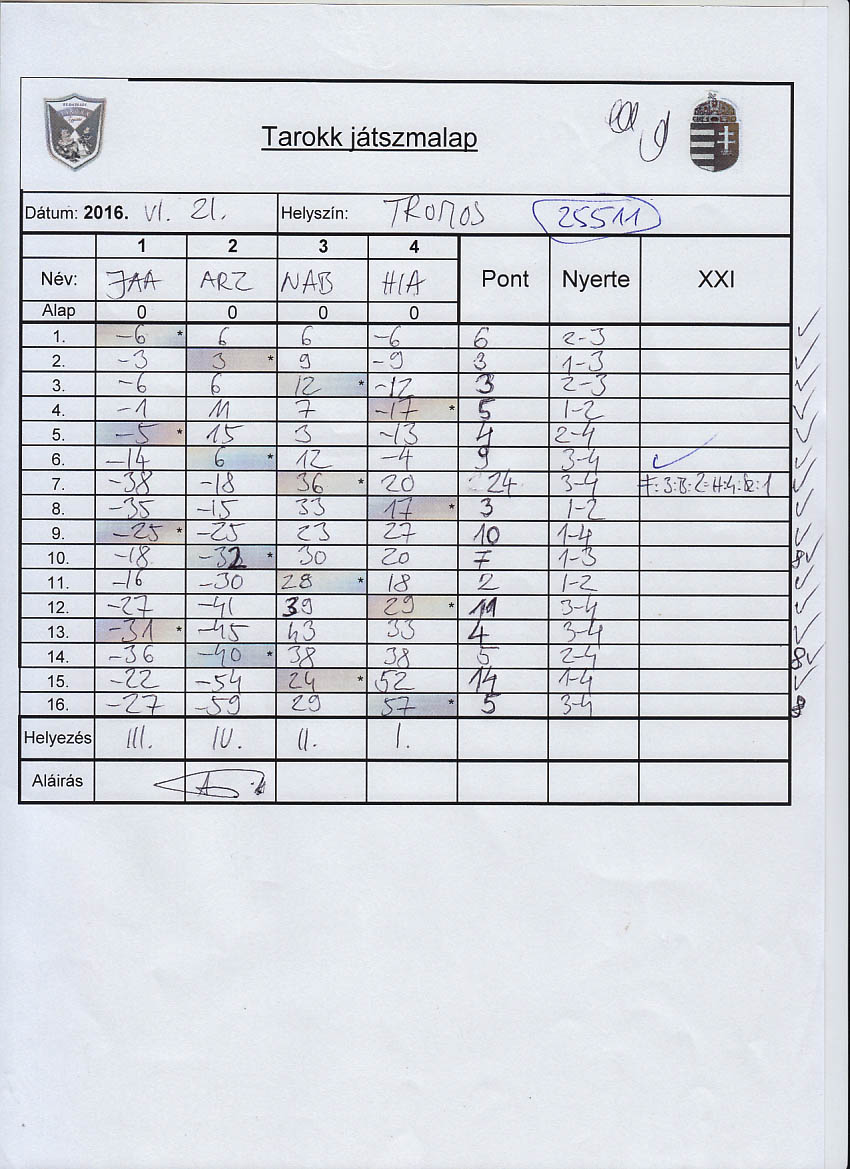 Tarokk játszmalap
Dátum: 2016. VI. 21. Helyszín: TROMOS 25511
1 2 3 4 Pont Nyerte XXI
Név: JAA ARZ NAB HIA
Alap 0 0 0 0
1. -6 * 6 6 -6 6 2-3
2. -3 3 * 9 -9 3 1-3
3. -6 6 12 * -12 3 2-3
4. -1 11 7 -17 * 5 1-2
5. -5 * 15 3 -13 4 2-4
6. -14 6 * 12 -4 9 3-4 ✓
7. -38 -18 36 * 20 24 3-4
8. -35 -15 33 17 * 3 1-2
9. -25 * -25 23 27 10 1-4
10. -18 -32 * 30 20 7 1-3
11. -16 -30 28 * 18 2 1-2
12. -27 -41 39 29 * 11 3-4
13. -31 * -45 43 33 4 3-4
14. -36 -40 * 38 38 5 2-4
15. -22 -54 24 * 52 14 1-4
16. -27 -59 29 57 * 5 3-4
Helyezés III. IV. II. I.
Aláírás